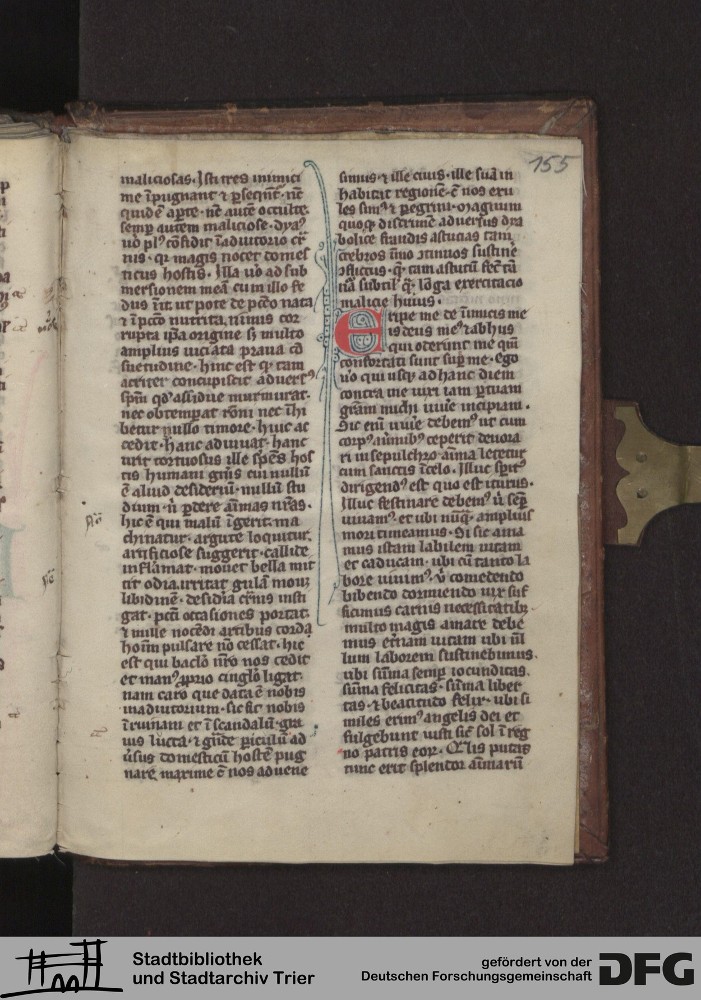 155
maliciosas · Isti tres inimici
me īpugnant ⁊ ꝑsequnt̄ · nc̄
quidē aꝑte · nc̄ autē occulte ·
semꝑ autem maliciose · dyaꝰ
uo plꝰ cōfidit ī adiutorio cr̄
nis · qr magis nocet domes
ticus hostis · Illa uo ad sub
mersionem meā cum illo fe
dus īit · ut pote de pcc̄o nata
⁊ ī pcc̄o nutrita · nimis cor
rupta ip̄a origine sꝫ multo
amplius uiciata praua cō
suetudine · hinc est ꝙ tam
acriter concupiscit aduersꝰ
sp̄m qd̓ assidue murmurat ·
nec obtemꝑat rōni nec īhi
betur nullo timore · huic ac
cedit · hanc adiuuat · hanc
utitur tortuosus ille sꝑens hos
tis humani gn̄is cui nullū
ē aliud desideriū · nullū stu
dium · n̄ ꝑdere aīmas nr̄as ·
hic ē qui malū īgerit · ma
chinatur · argute loquitur ·
artificiose suggerit · callide
inflamat · mouet bella mit
tit odia · irritat gulam mouꝫ
libidinē · desidia crīnis insti
gat · pcc̄i occasiones portat ·
⁊ mille nocēdi artibus corda
hoīm pulsare nō cessat · hic
est qui baclo nr̄o nos cedit
et manꝰ ꝓprio cinglo ligat
nam caro que data ē nobis
in adiutorium · sic fit nobis
ī ruinam et ī scandalū · gra
uis lucta · ⁊ gn̄de ꝑiculū ad
uersus domesticū hostē pug
nare · maxime ē nos aduene
simus ⁊ ille ciuis · ille suā in
habitat regionē · ē nos exu
les simꝰ ⁊ ꝑegrini · Magnum
quoqꝫ discrimē aduersus dya
bolice fraudis astucias tam
crebros īmo ꝯtinuos sustinē
ꝯflictus · ꝙ tam astutū fec̄ tā
tū subtil' q̄ · lōga exercitacio
malicie huius ·
Eripe me de inimicis me
is deus meꝰ ⁊ ab hiis
qui oderunt me qm̄
confortati sunt suꝑ me · ego
uo qui usqꝫ ad hanc diem
contra me uixi iam ꝑ tuam
grām michi uiue incipiam ·
Sic eni uiuē debemꝰ ut cum
corpꝰ a uībꝰ ceperit deuora
ri in sepulchro · aīma letetur
cum sanctis ī celo · Illuc spirꝰ
dirigendꝰ est quo est iturus ·
Illuc festinare debemꝰ u seꝑ
uiuamꝰ · et ubi nūqꝫ ampluis
mori timeamus · Si sic ama
mus istam labilem uitam
et caducam · ubi cū tanto la
bore uiuimꝰ · u comedendo
bibendo dormiendo uix suf
ficimus carnis necessitatibꝫ ·
multo magis amare debe
mus eternam uitam ubi nl̄
lum laborem sustinebimus ·
ubi sūma semꝑ iocunditas ·
sūma felicitas · sūma liber
tas · ⁊ beatitudo felix · ubi si
miles erimꝰ angelis dei et
fulgebunt iusti sic̄ sol ī reg
no patris eoꝝ · Qualis putas
tunc erit splendor aīmarū
Stadtbibliothek
und Stadtarchiv Trier
gefördert von der
Deutschen Forschungsgemeinschaft
DFG